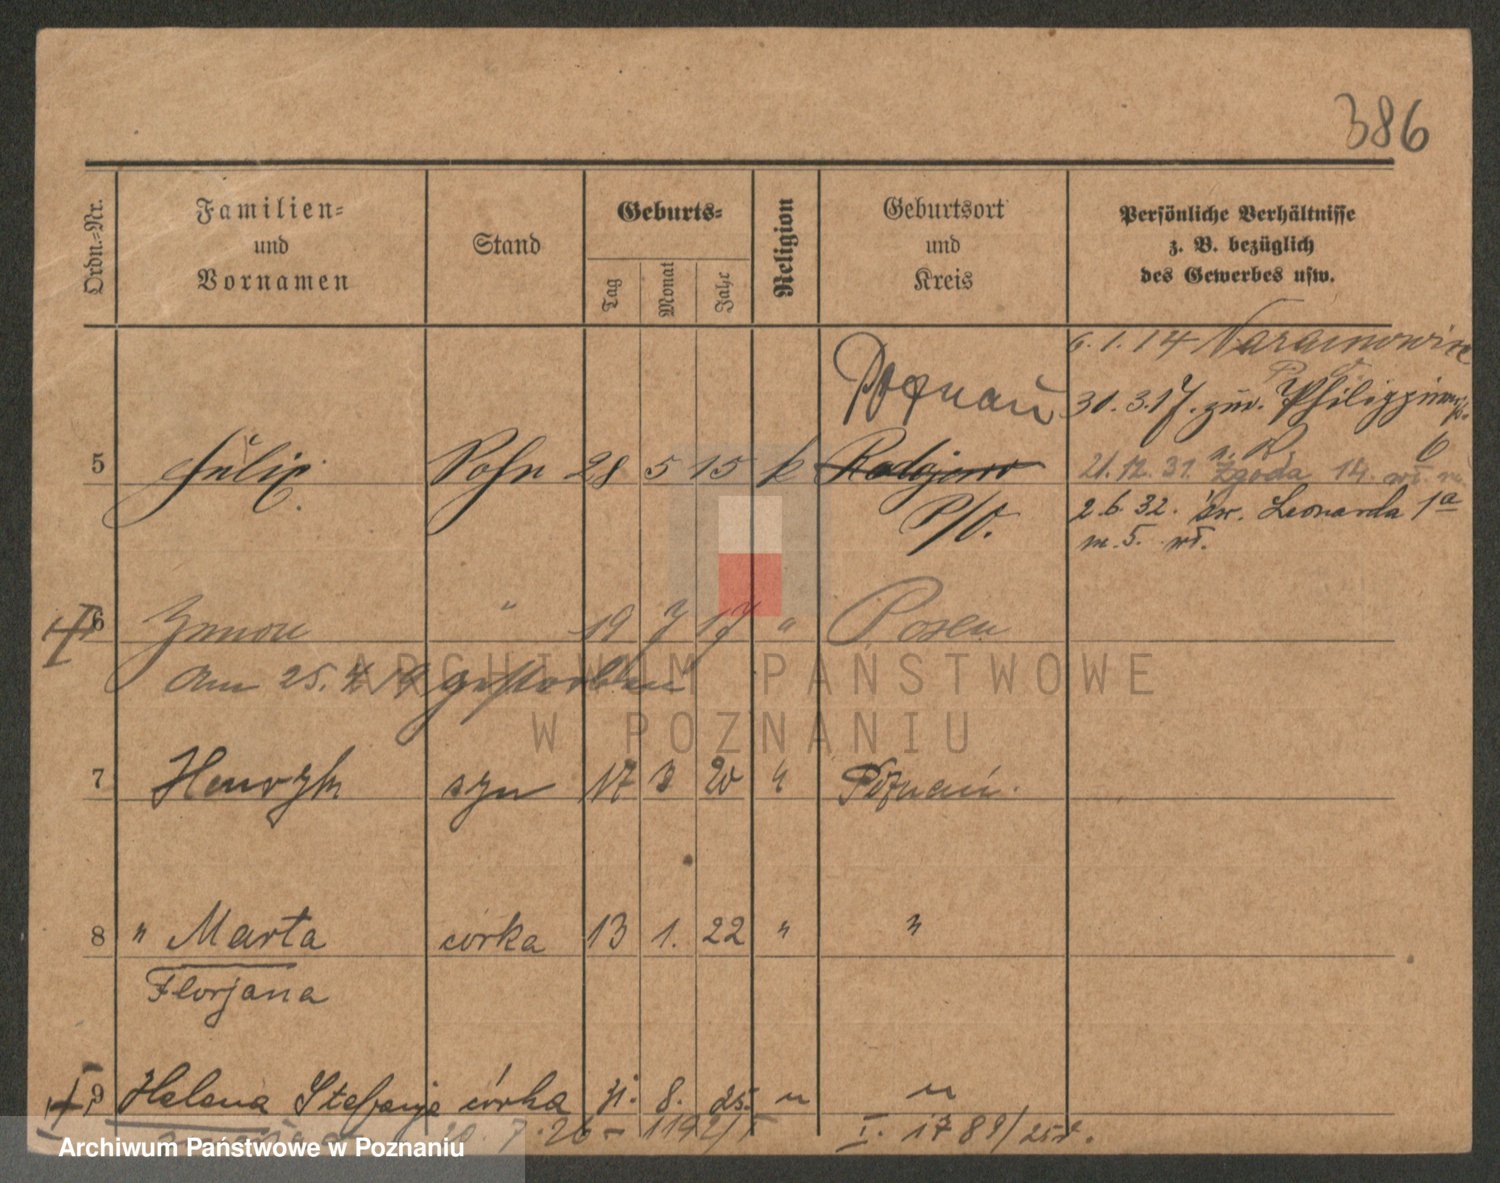 386
Ordn.-Nr.
Familien-
und
Vornamen
Stand
Geburts-
Tag
Monat
Jahr
Religion
Geburtsort
und
Kreis
Persönliche Verhältnisse
z. B. bezüglich
des Gewerbes usw.
6. 1. 14 Naramowice
Poznań 30. 3. 17. zur. Philippine
5 Felix Sohn 28 5 15 k Radojewo 21. 12. 31. Zgoda 14.
P/O. 2. 6. 32. św. Leonarda 1a
m. 5. wł.
6 Zenon " 19 7 17 " Posen
Am 25. 4. 19 gestorben
ARCHIWUM PAŃSTWOWE
W POZNANIU
7 Henryk syn 17 3 20 " Poznań.
8 " Marta córka 13 1. 22 " "
Florjana
9 Helena Stefanja córka 31. 8. 25. " "
20. 7. 26 – 1192/I I. 1789/25r.
Archiwum Państwowe w Poznaniu